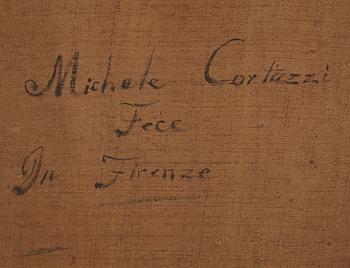 Michele Cortazzi
Fece
In Firenze